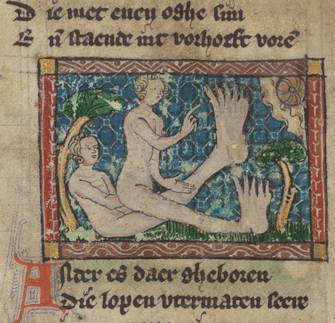 D ie met enen oghe siin
E ñ staende int vorhoeft vorē
es daer gheboren
die lopen vtermaten seere